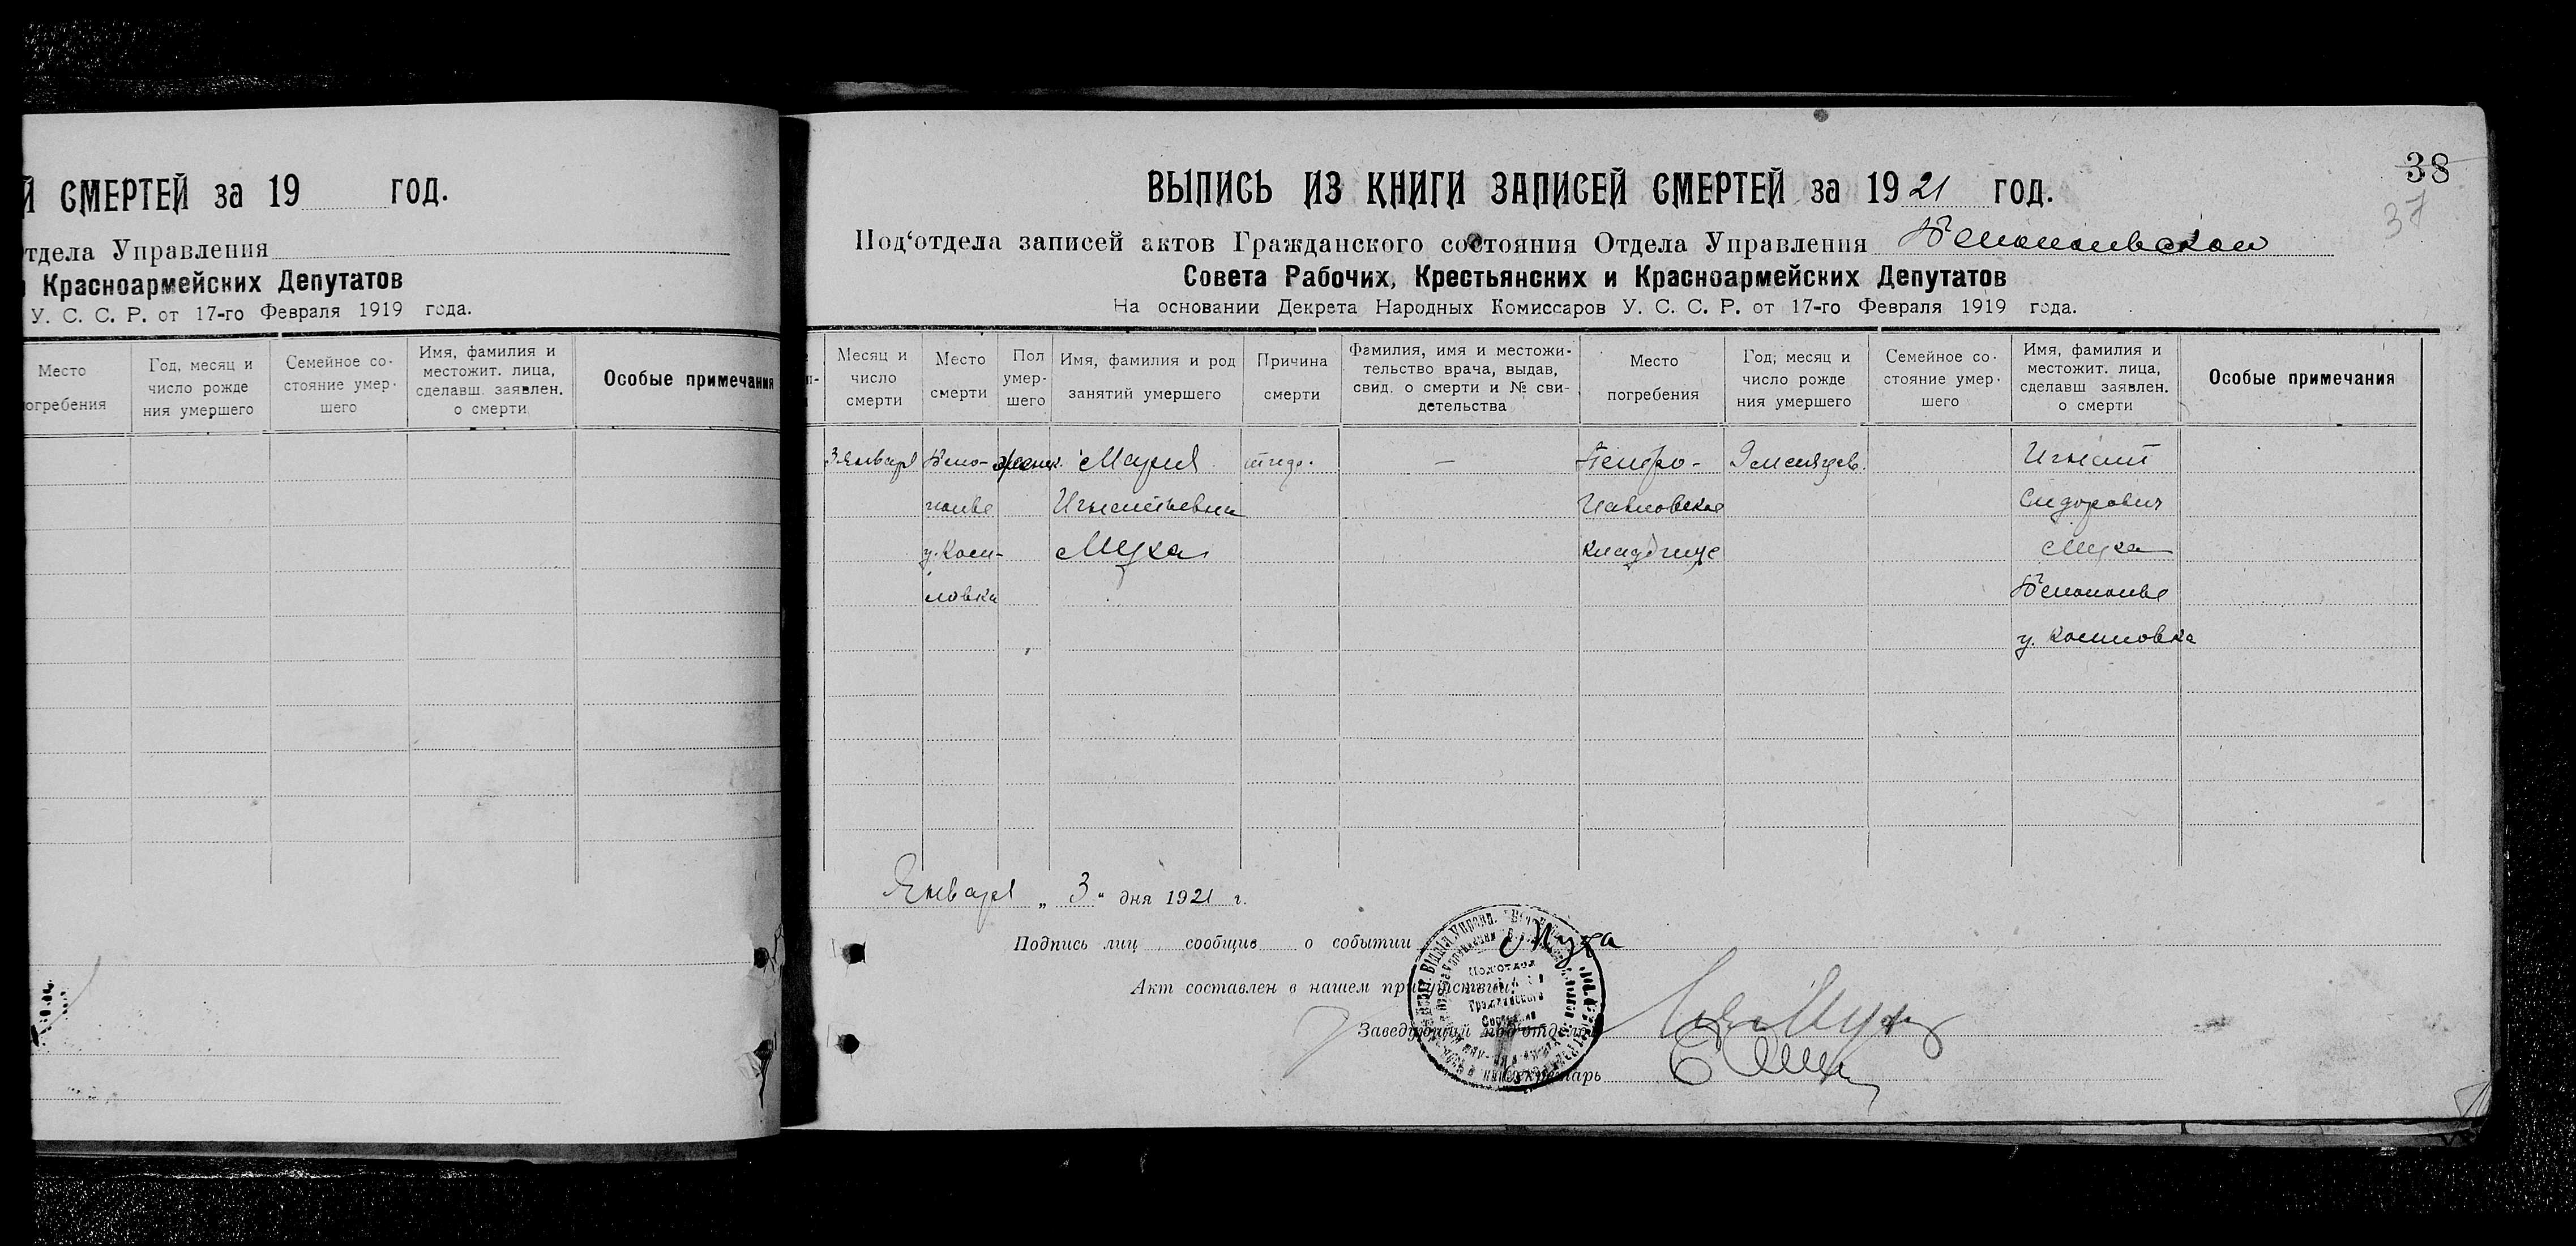 Й СМЕРТЕЙ за 19 ГОД.
тдела Управления
и Красноармейских Депутатов
У. С. С. Р. от 17-го Февраля 1919 года.
Место
огребения
Год, месяц и
число рожде
ния умершего
Семейное со-
стояние умер-
шего
Имя, фамилия и
местожит. лица,
сделавш. заявлен.
о смерти
Особые примечания
38
37
ВЫПИСЬ ИЗ КНИГИ ЗАПИСЕЙ СМЕРТЕЙ за 1921 год.
Под‘отдела записей актов Гражданского состояния Отдела Управления Белопольской
Совета Рабочих, Крестьянских и Красноармейских Депутатов
На основании Декрета Народных Комиссаров У. С. С. Р. от 17-го Февраля 1919 года.
Месяц и
число
смерти
Место
смерти
Пол
умер-
шего
Имя, фамилия и род
занятий умершего
Причина
смерти
Фамилия, имя и местожи-
тельство врача, выдав,
свид. о смерти и № сви-
детельства
Место
погребения
Год, месяц и
число рожде
ния умершего
Семейное со-
стояние умер-
шего
Имя, фамилия и
местожит. лица,
сделавш заявлен.
о смерти
Особые примечания
3 Января
Бело-
полье
женск.
Мария
Игнатьевна
Муха
—
Петро-
Павловское
кладбище
9 месяцев.
Игнат
Сидорович
Муха
Белополье
Января „ 3 “ дня 1921 г.
Подпись лиц сообщив о событии Муха
Акт составлен в нашем присутствии
Заведующий под‘отделом
Секретарь
Под‘отдел
Гражданского